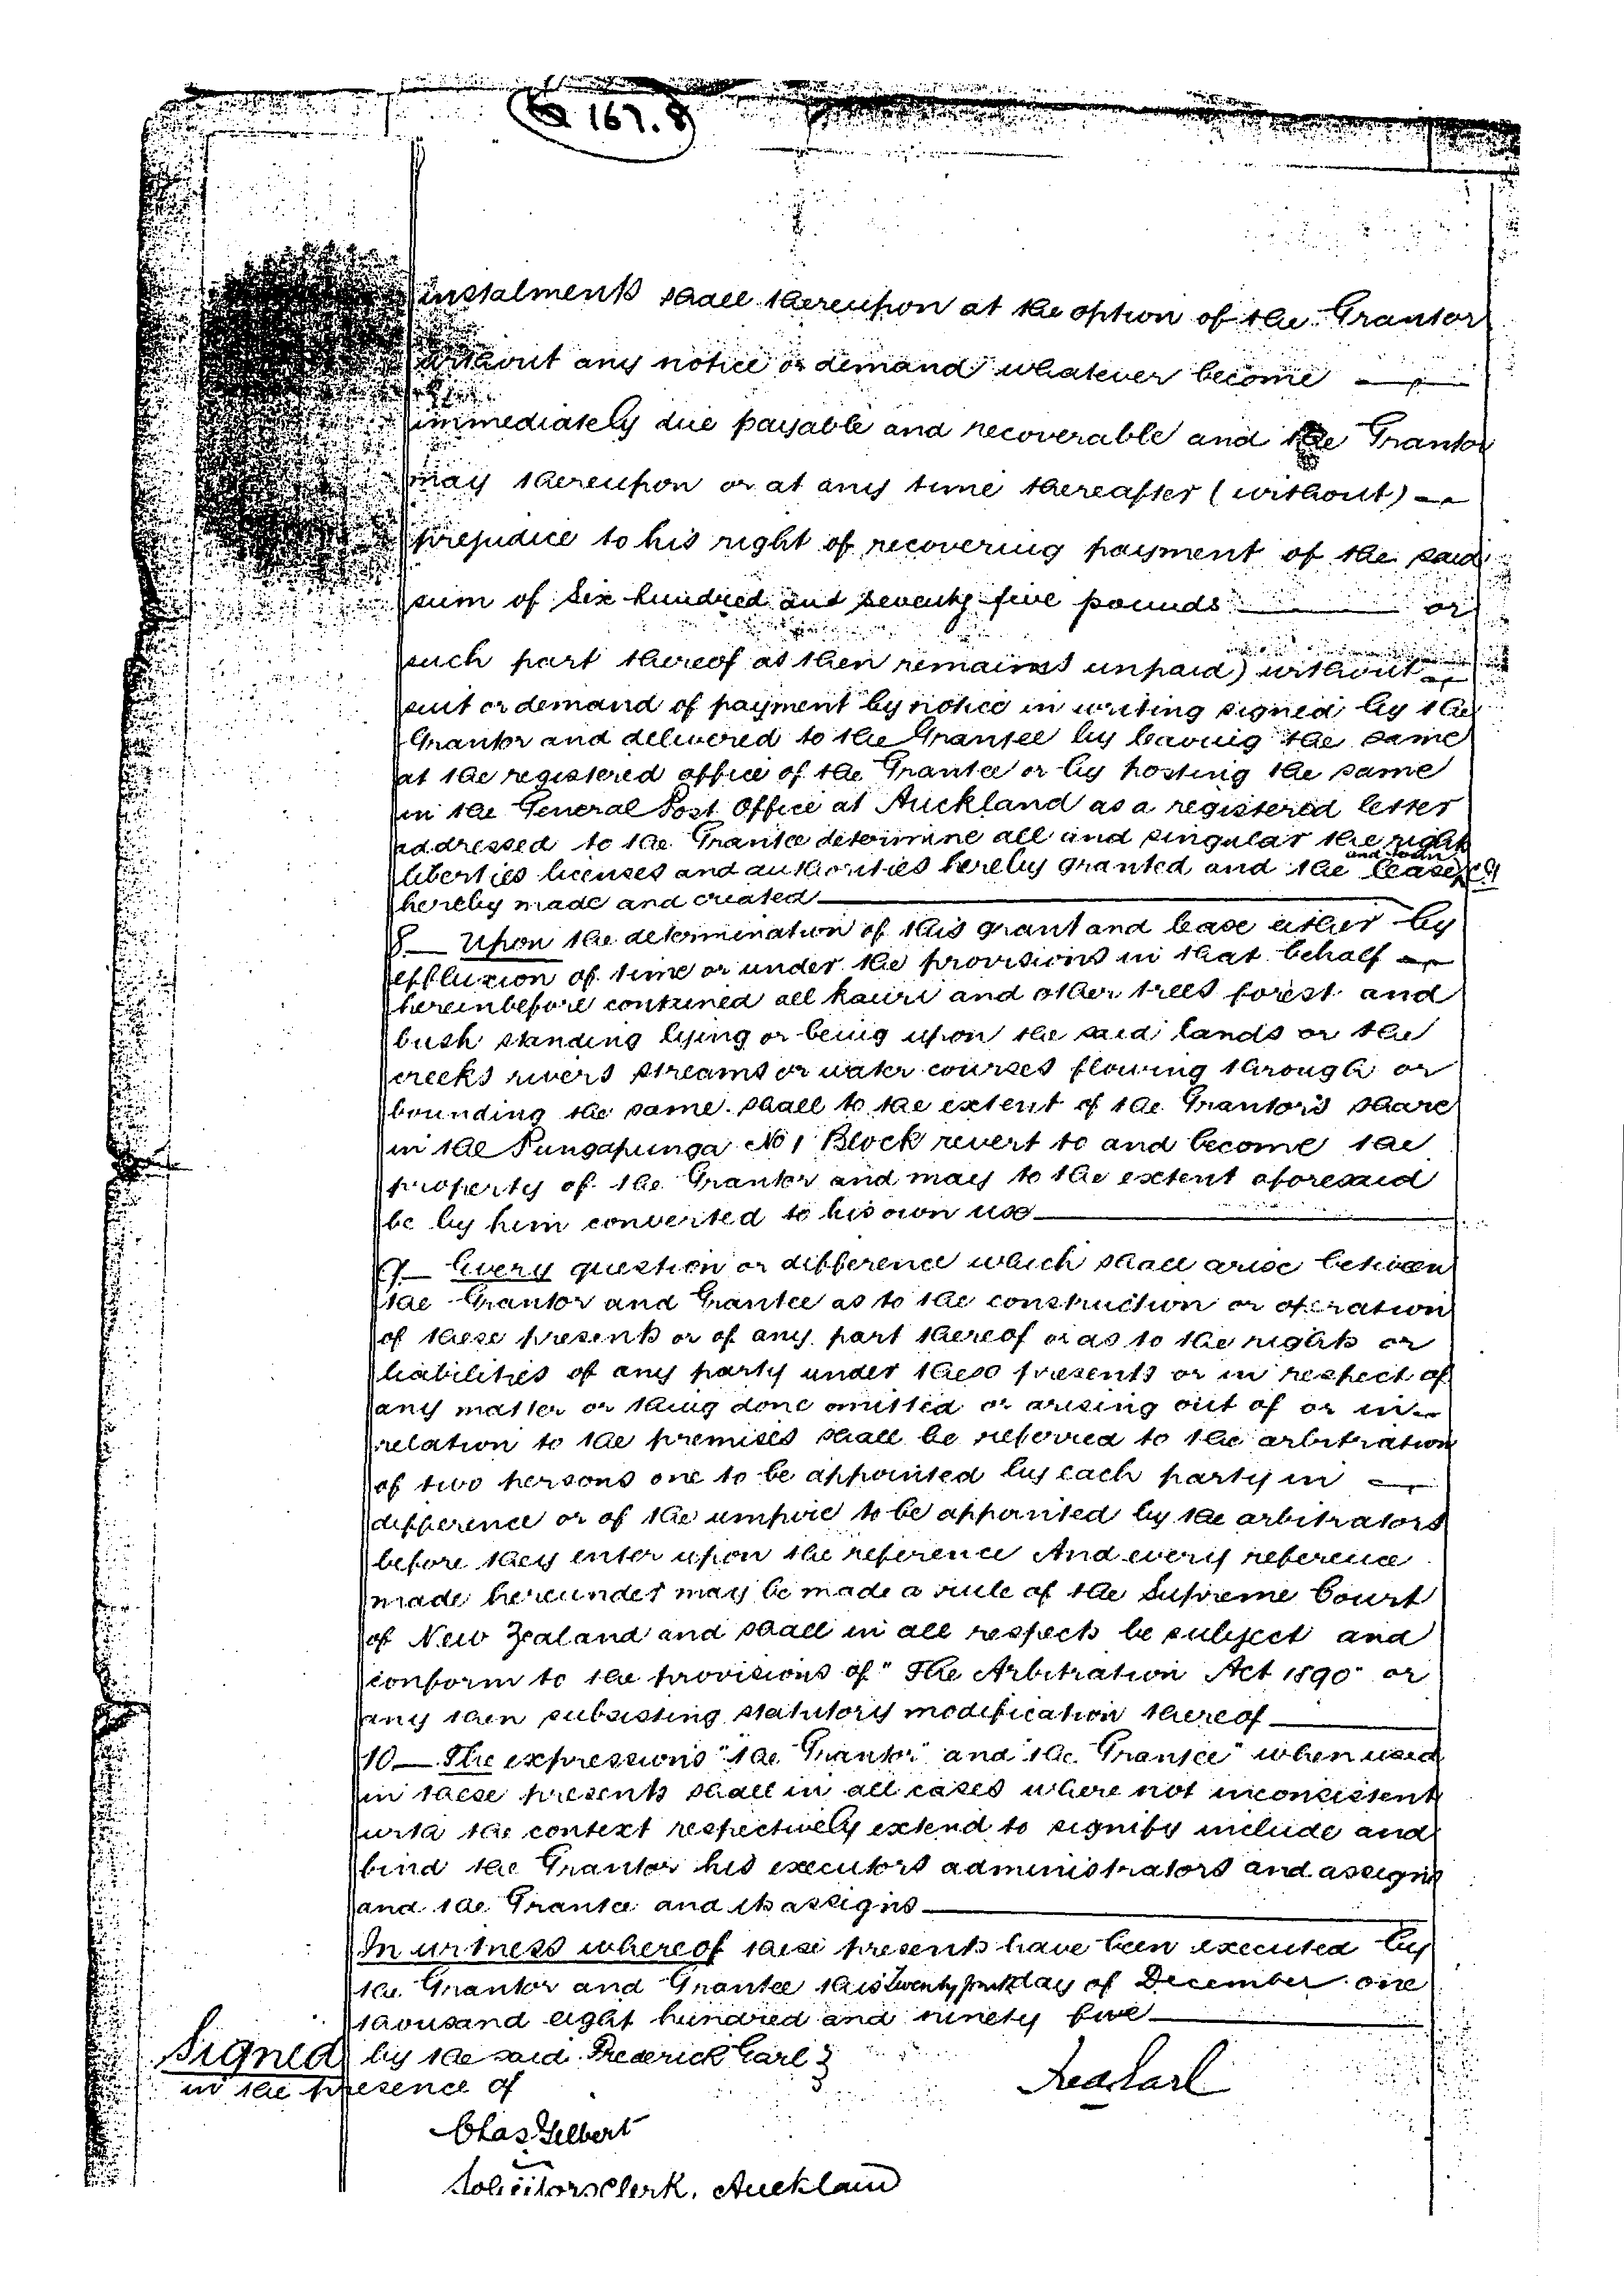 167.8
instalments shall thereupon at the option of the Grantor
without any notice or demand whatever become
immediately due payable and recoverable and the Grantor
may thereupon or at any time thereafter (without)
prejudice to his right of recovering payment of the said
sum of Six hundred and seventy five pounds or
such part thereof as then remains unpaid) without
suit or demand of payment by notice in writing signed by the
Grantor and delivered to the Grantee by leaving the same
at the registered office of the Grantee or by posting the same
in the General Post Office at Auckland as a registered letter
addressed to the Grantee determine all and singular the rights
liberties licenses and authorities hereby granted and the lease
hereby made and created
8. Upon the determination of this grant and lease either by
effluxion of time or under the provisions in that behalf
hereinbefore contained all kauri and other trees forest and
bush standing lying or being upon the said lands or the
creeks rivers streams or water courses flowing through or
bounding the same shall to the extent of the Grantor's share
in the Pungapunga No 1 Block revert to and become the
property of the Grantor and may to the extent aforesaid
be by him converted to his own use
9. Every question or difference which shall arise between
the Grantor and Grantee as to the construction or operation
of these presents or of any part thereof or as to the rights or
liabilities of any party under these presents or in respect of
any matter or thing done omitted or arising out of or in
relation to the premises shall be referred to the arbitration
of two persons one to be appointed by each party in
difference or of the umpire to be appointed by the arbitrators
before they enter upon the reference And every reference
made hereunder may be made a rule of the Supreme Court
of New Zealand and shall in all respects be subject and
conform to the provisions of "The Arbitration Act 1890" or
any then subsisting statutory modification thereof
10. The expressions "the Grantor" and "the Grantee" when used
in these presents shall in all cases where not inconsistent
with the context respectively extend to signify include and
bind the Grantor his executors administrators and assigns
and the Grantee and its assigns
In witness whereof these presents have been executed by
the Grantor and Grantee this Twenty day of December one
thousand eight hundred and ninety five
Signed by the said Frederick Earl
in the presence of
Fred Earl
Chas Gilbert
Solicitors Clerk, Auckland